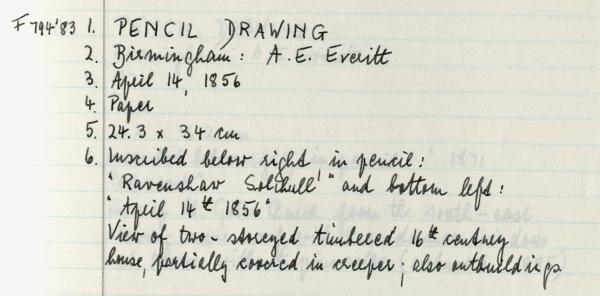 F794'83 1. PENCIL DRAWING
2. Birmingham: A.E. Everitt
3. April 14, 1856
4. Paper
5. 24.3 x 34 cm
6. Inscribed below right in pencil:
"Ravenshaw Solihull'" and bottom left:
"April 14th 1856"
View of two-storeyed timbered 16th century
house, partially covered in creeper; also outbuildings